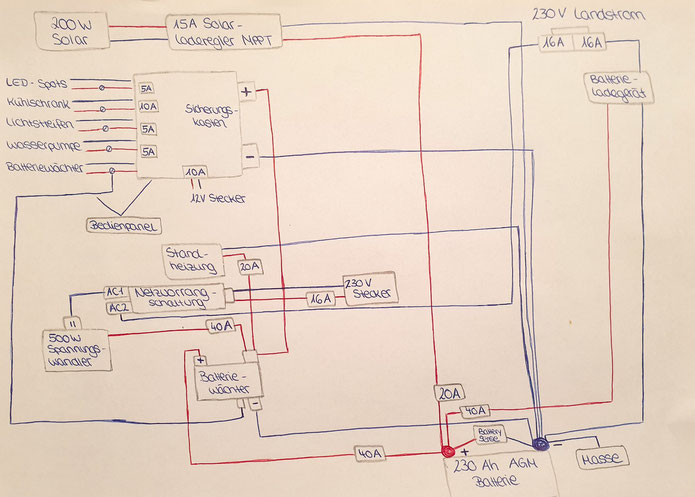 200W
Solar
15A Solar-
laderegler MPPT
230V Landstrom
16A 16A
Batterie-
ladegerät
LED-Spots
5A
+
Kühlschrank
10A
Sicherungs-
kasten
Lichtstreifen
5A
Wasserpumpe
5A
-
Batteriewächter
10A
12V Stecker
Bedienpanel
Stand-
heizung
20A
AC1
Netzvorrang-
schaltung
230V
Stecker
16A
AC2
=
40A
500W
Spannungs-
wandler
+
Batterie-
wächter
-
20A
40A
Battery
Sense
40A
+
-
230 Ah AGM
Batterie
Masse